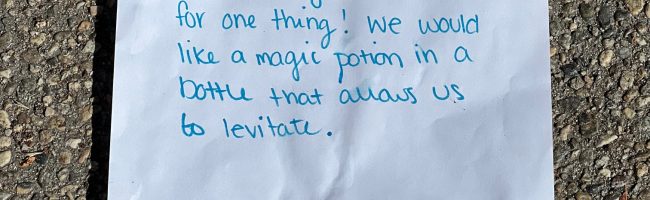 for one thing! we would
like a magic potion in a
bottle that allows us
to levitate.